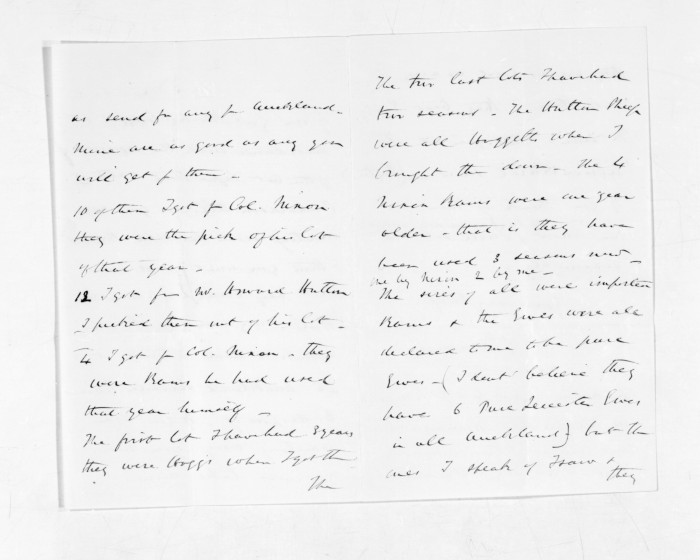 as send for any fr Auckland -
Mine are as good as any you
will get f them -
10 of them I got fr Col. Nixon
they were the pick of his lot
of that year -
12 I got from Mr. Howard Hutton
I picked them out of his lot -
4 I got fr Col. Nixon - they
were Rams he had used
that year himself -
The first lot I have had 3 years
they were Hoggs when I got th
The
The two last lots I have had
two seasons - The Hutton Sheep
were all Hoggetts when I
brought them down - the 4
Nixon Rams were one year
older - that is they have
been used 3 seasons now -
one by Nixon 2 by me -
The sires of all were imported
Rams & the Ewes were all
declared to me to be pure
Ewes - (I dont believe they
have 6 Pure Leicester Ewes
in all Auckland) but the
ones I speak of I saw &
they